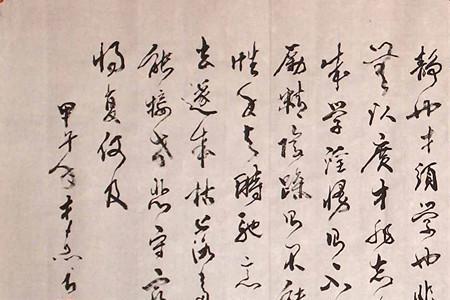 静也才須学也非
無以廣才非志
成学淫慢則不
励精險躁則不能
性年与時馳意
去遂成枯落多
能接世悲守窮
将复何及
甲午年